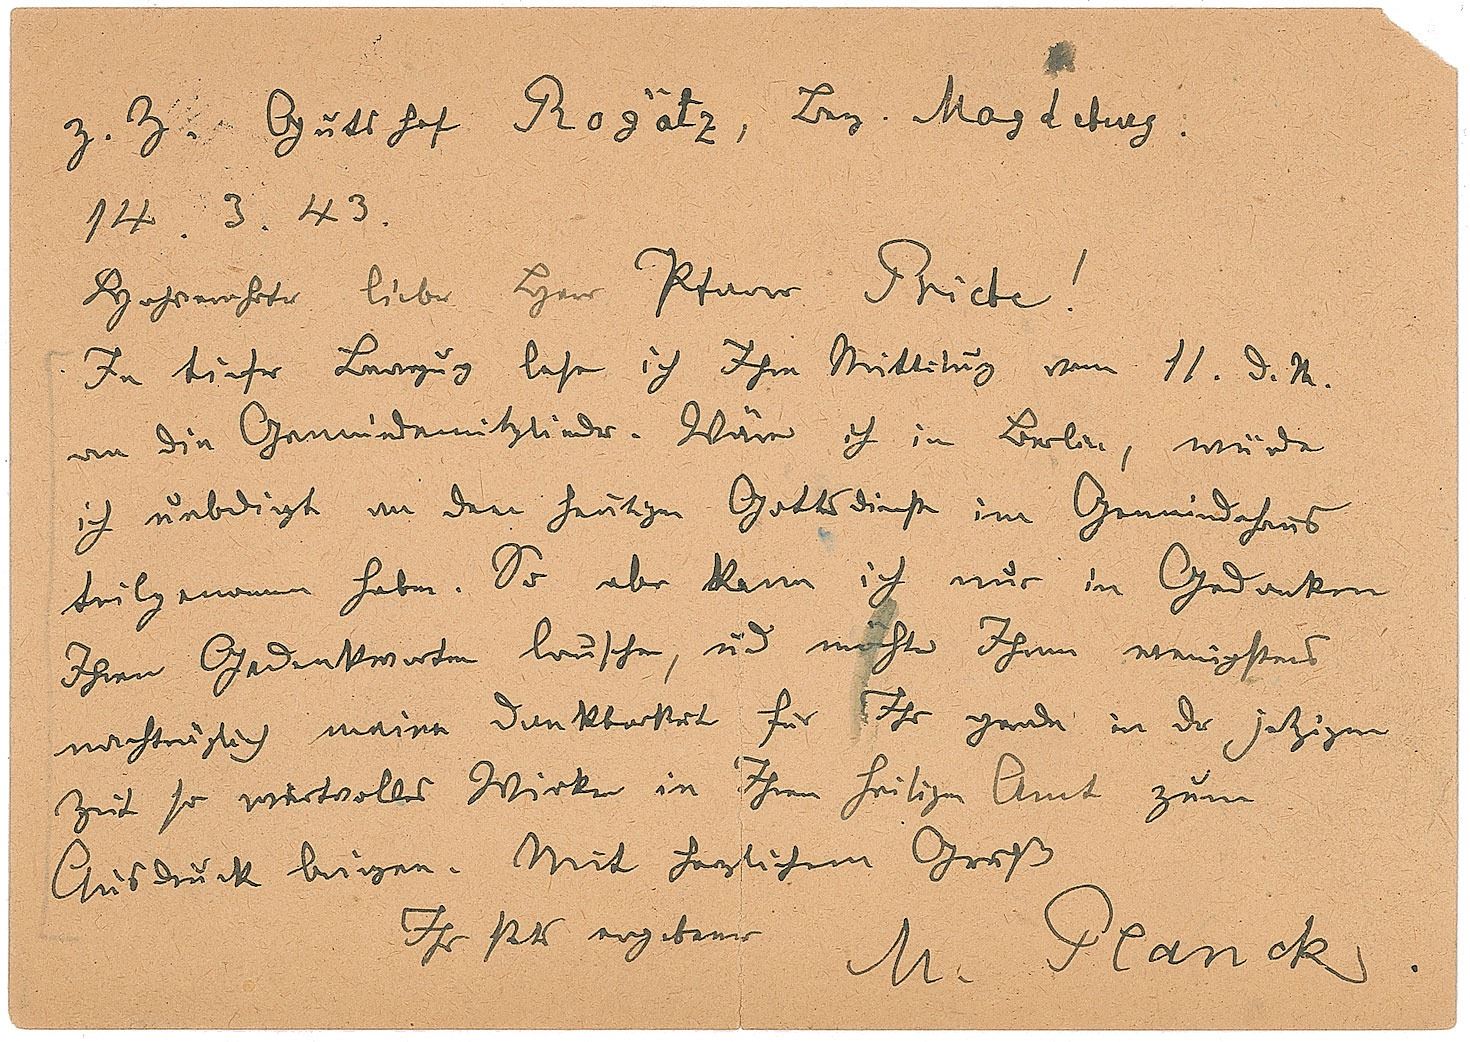 z. Z. Gutshof Rogätz, Bez. Magdeburg.
14. 3. 43.
Hochverehrter lieber Herr Pfarrer Priebe!
In tiefer Bewegung lese ich Ihre Mitteilung vom 11. d. M.
an die Gemeindemitglieder. Wäre ich in Berlin, würde
ich unbedingt an dem heutigen Gottesdienst im Gemeindehaus
teilgenommen haben. So aber kann ich nur in Gedanken
Ihren Gedenkworten lauschen, und möchte Ihnen wenigstens
nachträglich meine Dankbarkeit für Ihr gerade in der jetzigen
Zeit so wertvolles Wirken in Ihrem heiligen Amt zum
Ausdruck bringen. Mit herzlichem Gruß
Ihr stets ergebener M. Planck.